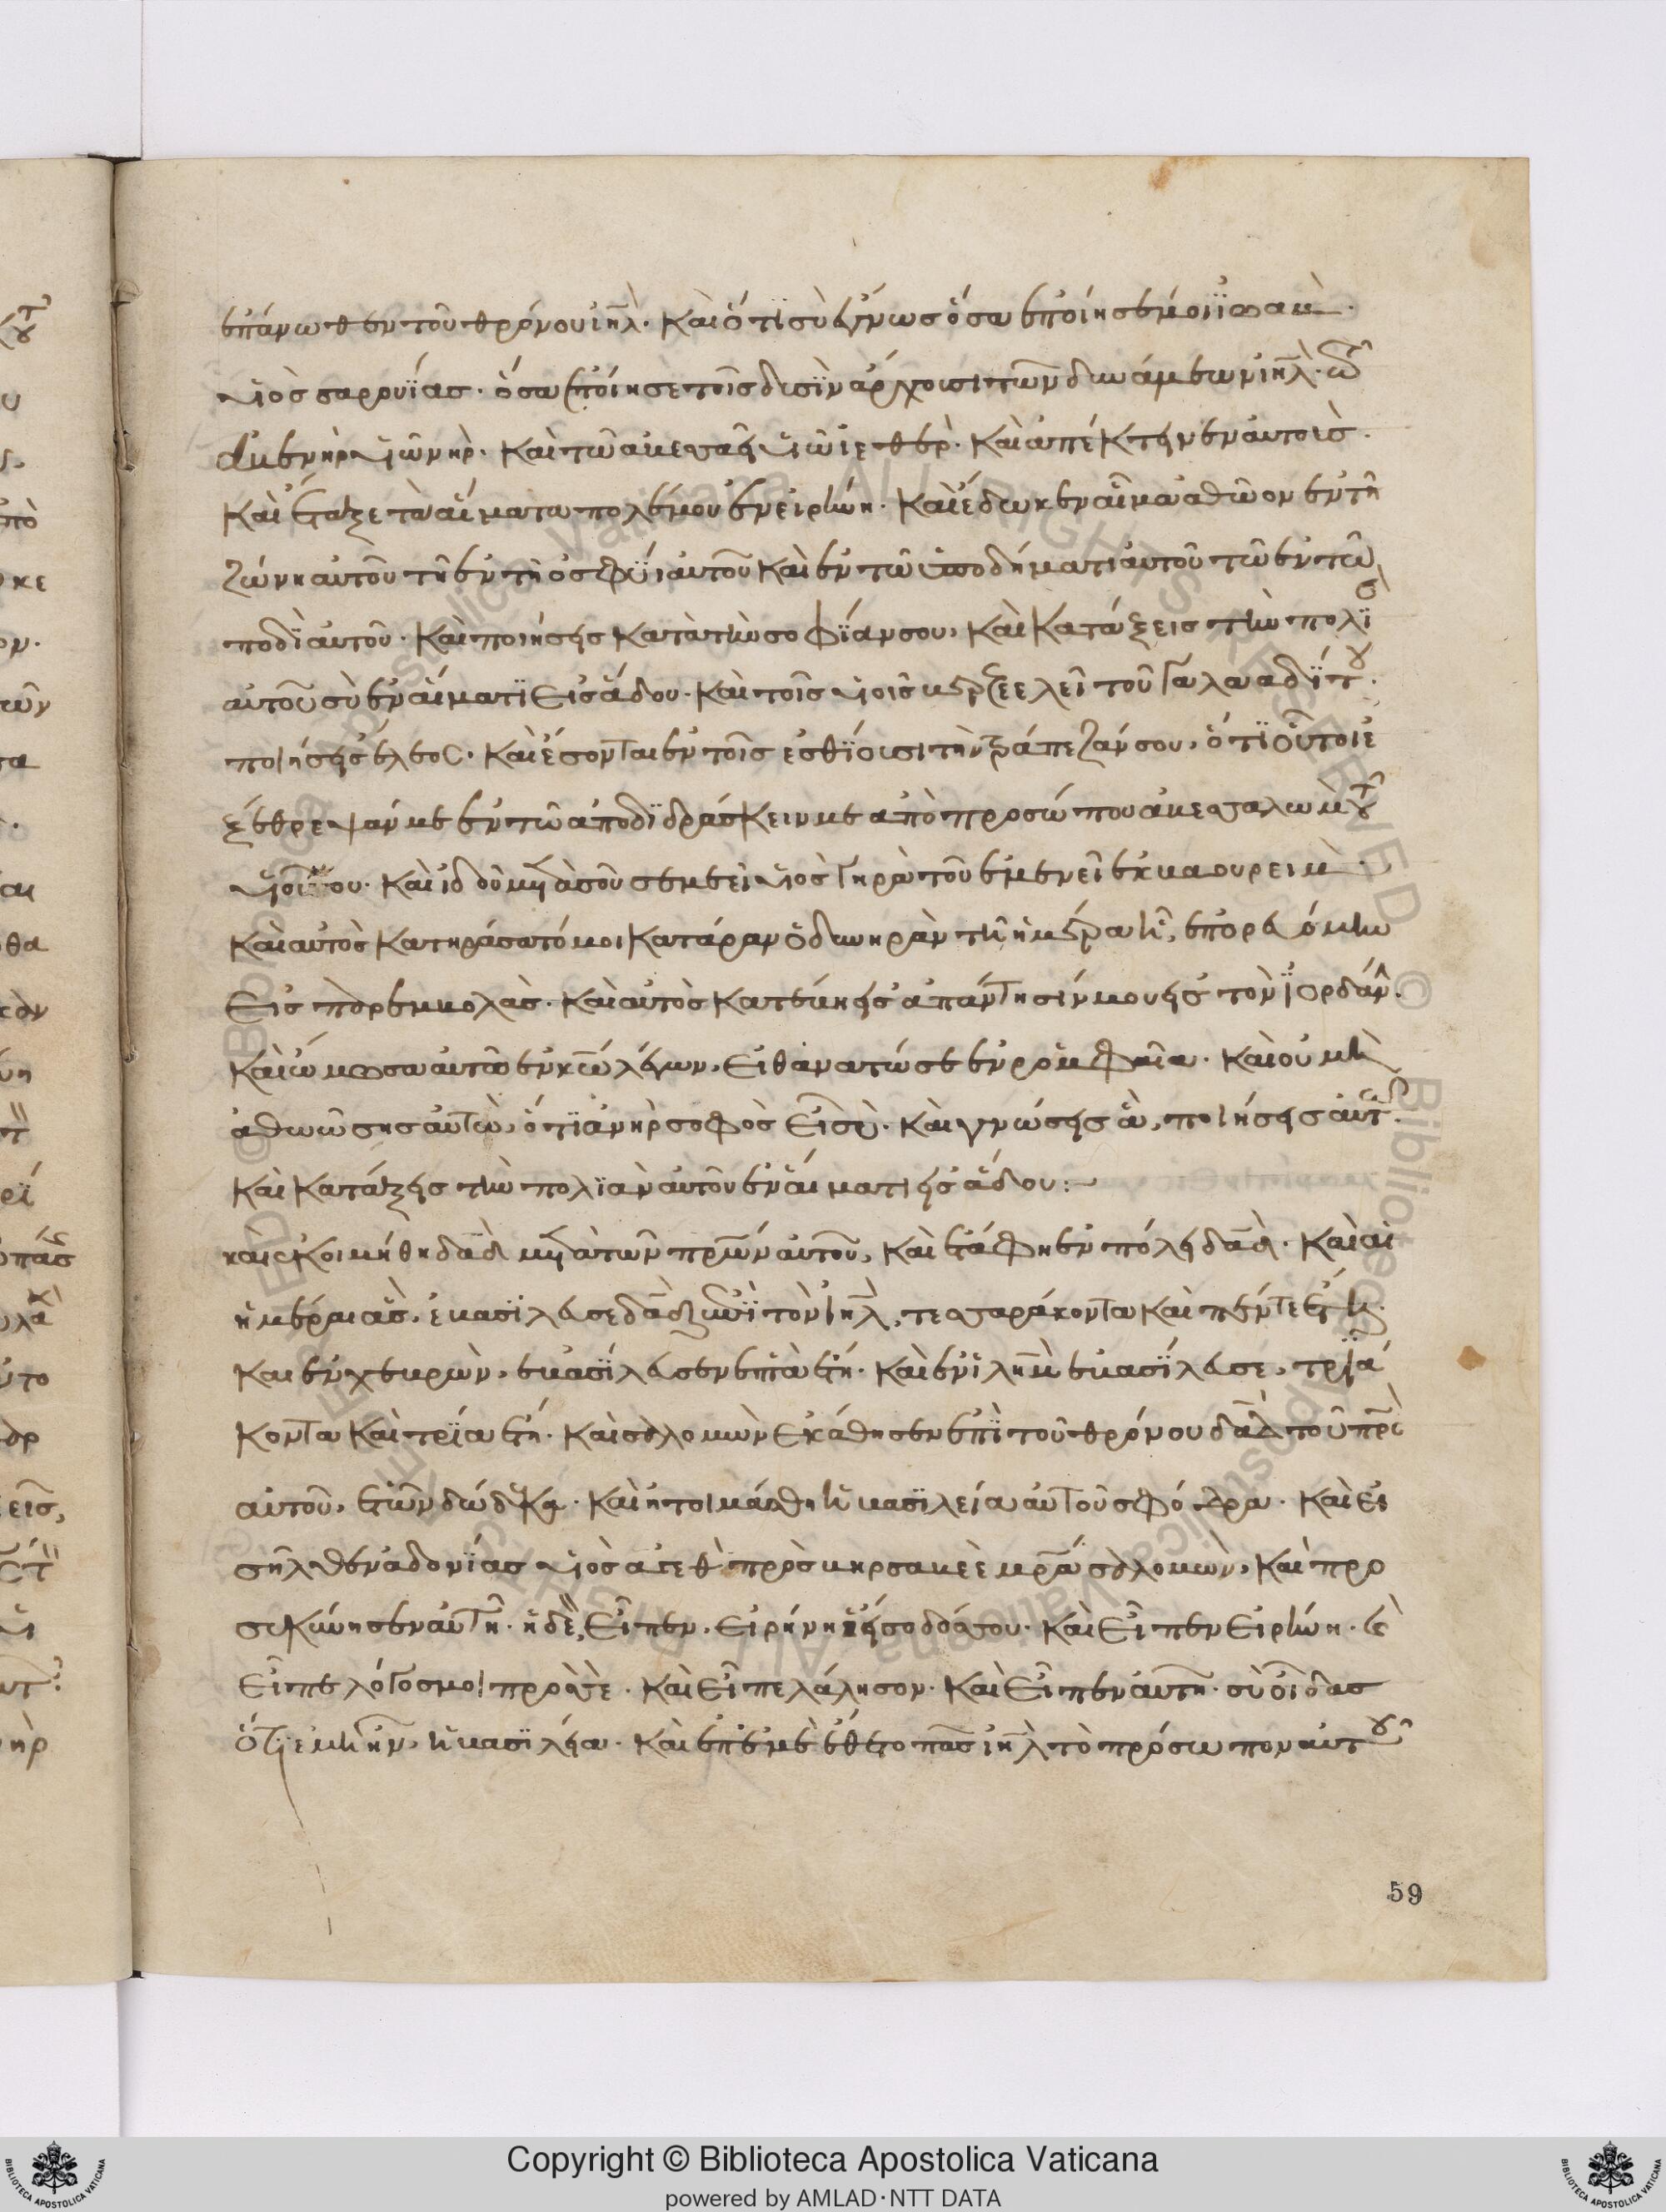 ἐπάνωθεν τοῦ θρόνου ιηλ. Καὶ ὅτι σὺ ἔγνως ὅσα ἐποίησέ μοι ϊωαβ.
υἱὸς σαρουΐας. ὅσα ἐποίησε τοῖς δυσὶν ἄρχουσι τῶν δυνάμεων ιηλ.
ἀβενὴρ υἱῶ νηρ. Καὶ τῶ ἀμεσσαεὶ υἱῶ ἰεθερ. Καὶ ἀπέκτεινεν αὐτοὺς.
Καὶ ἔταξε τὰ αἵματα πολέμου ἐν εἰρήνη. Καὶ ἔδωκεν αἷμα ἀθῶον ἐν τῆ
ζώνη αὐτοῦ τῆ ἐν τῆ ὀσφύϊ αὐτοῦ καὶ ἐν τῶ ὑποδήματι αὐτοῦ τῶ ἐν τῶ
ποδὶ αὐτοῦ. Καὶ ποιήσεις κατὰ τὴν σοφΐαν σου, καὶ κατάξεις τὴν πολϊ
αὐτοῦ σὺ ἐν αἵματϊ εἰς ἅδου. Καὶ τοῖς υἱοῖς βερζελεῒ τοῦ γαλααδΐτου.
ποιήσεις ἔλεος. Καὶ ἔσονται ἐν τοῖς ἐσθΐουσι τὴν τράπεζάν σου, ὅτϊ οὗτοι ἐ
ξέθρεψάν με ἐν τῶ ἀποδϊδράσκειν με ἀπὸ προσώπου ἀβεσσαλὼμ τοῦ
υἱοῦ μου. Καὶ ἰδοὺ μετὰ σοῦ σεμεεὶ υἱὸς γηρὰ τοῦ ἐμενεῒ ἐκ βαουρείμ.
Καὶ αὐτὸς κατηράσατό μοι κατάραν ὀδυνηρὰν τῆ ἡμέρα ἧ, ἐπορευόμην
εἰς παρεμβολὰς. Καὶ αὐτὸς κατέβη εἰς ἀπάντησίν μου εἰς τὸν ϊορδάν.
Καὶ ὤμοσα αὐτῶ ἐν κω λέγων, εἰ θανατώσε ἐν ρομφαία. Καὶ οὐ μὴ
ἀθωώσης αὐτὸν, ὅτϊ ἀνὴρ σοφὸς εἶ σὺ. Καὶ γνώσεις ἃ, ποιήσεις αὐτ.
Καὶ κατάξεις τὴν πολϊὰν αὐτοῦ ἐν αἵματι εἰς ἅδου:
καὶ ἐκοιμήθη δαδ μετὰ τῶν πρων αὐτοῦ, καὶ ἐτάφη ἐν πόλει δαδ. Καὶ αἱ
ἡμέραι ἃς, ἐβασΐλευσε δαδ ἐπὶ τὸν ιηλ, τεσσαράκοντα καὶ πέντε ἔτη.
Καὶ ἐν χεβρὼν, ἐβασΐλευσεν ἑπτὰ ἔτη. Καὶ ἐν ϊλημ ἐβασΐλευσε, τριά
κοντα καὶ τρΐα ἔτη. Καὶ σολομὼν ἐκάθησεν ἐπὶ τοῦ θρόνου δαδ τοῦ πρς
αὐτοῦ, ἐτῶν δώδεκα. Καὶ ἡτοιμάσθη ἡ βασϊλεία αὐτοῦ σφόδρα. Καὶ εἰ
σῆλθεν ἀδονΐας υἱὸς ἀγεὶθ πρὸς βηρσαβεὲ μρα σολομὼν, καὶ προ
σεκύνησεν αὐτῆ. ἡ δὲ, εἶπεν, εἰρήνη ἡ εἴσοδός σου. Καὶ εἶπεν εἰρήνη.
εἶπε λόγος μοι πρός σε. Καὶ εἶπε λάλησον. Καὶ εἶπεν αὐτῆ. σὺ οἶδας
ὅτι ἐμὴ ἦν, ἡ βασϊλεία. Καὶ ἐπ ἐμὲ ἔθετο πᾶς ιηλ τὸ πρόσωπον αὐτοῦ
59
Copyright © Biblioteca Apostolica Vaticana
powered by AMLAD·NTT DATA